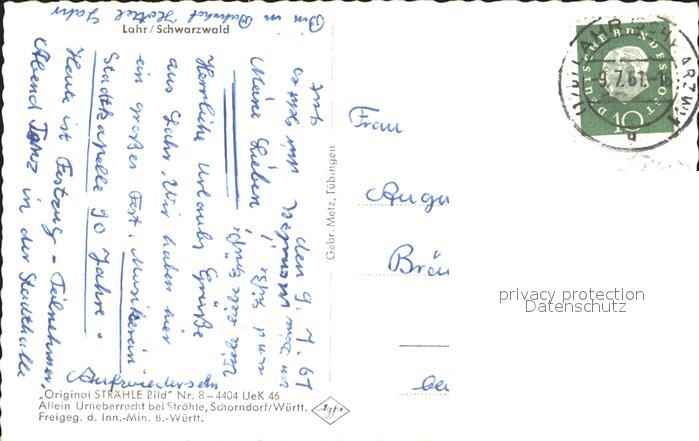 Bin im Bahnhof Hotel Lahr
Lahr/Schwarzwald
den 9. 7. 61
Meine Lieben
Herrliche Urlaubs Grüße
aus Lahr. Wir haben hier
ein großes Fest. Musikverein
Stadtkapelle 90 Jahre.
Heute ist Festzug - Teilnehmer.
Abend Tanz in der Stadthalle
Aufwiedersehn
„Original STRÄHLE Bild" Nr. 8-4404 UeK 46
Allein Urheberrecht bei Strähle, Schorndorf/Württ.
Freigeg. d. Inn.-Min. B.-Württ.
Agfa
Gebr. Metz, Tübingen
Frau
Augu
Bräu
bei
DEUTSCHE BUNDESPOST
10
LAHR (SCHWARZW)
9.7.61.-18
a
privacy protection
Datenschutz